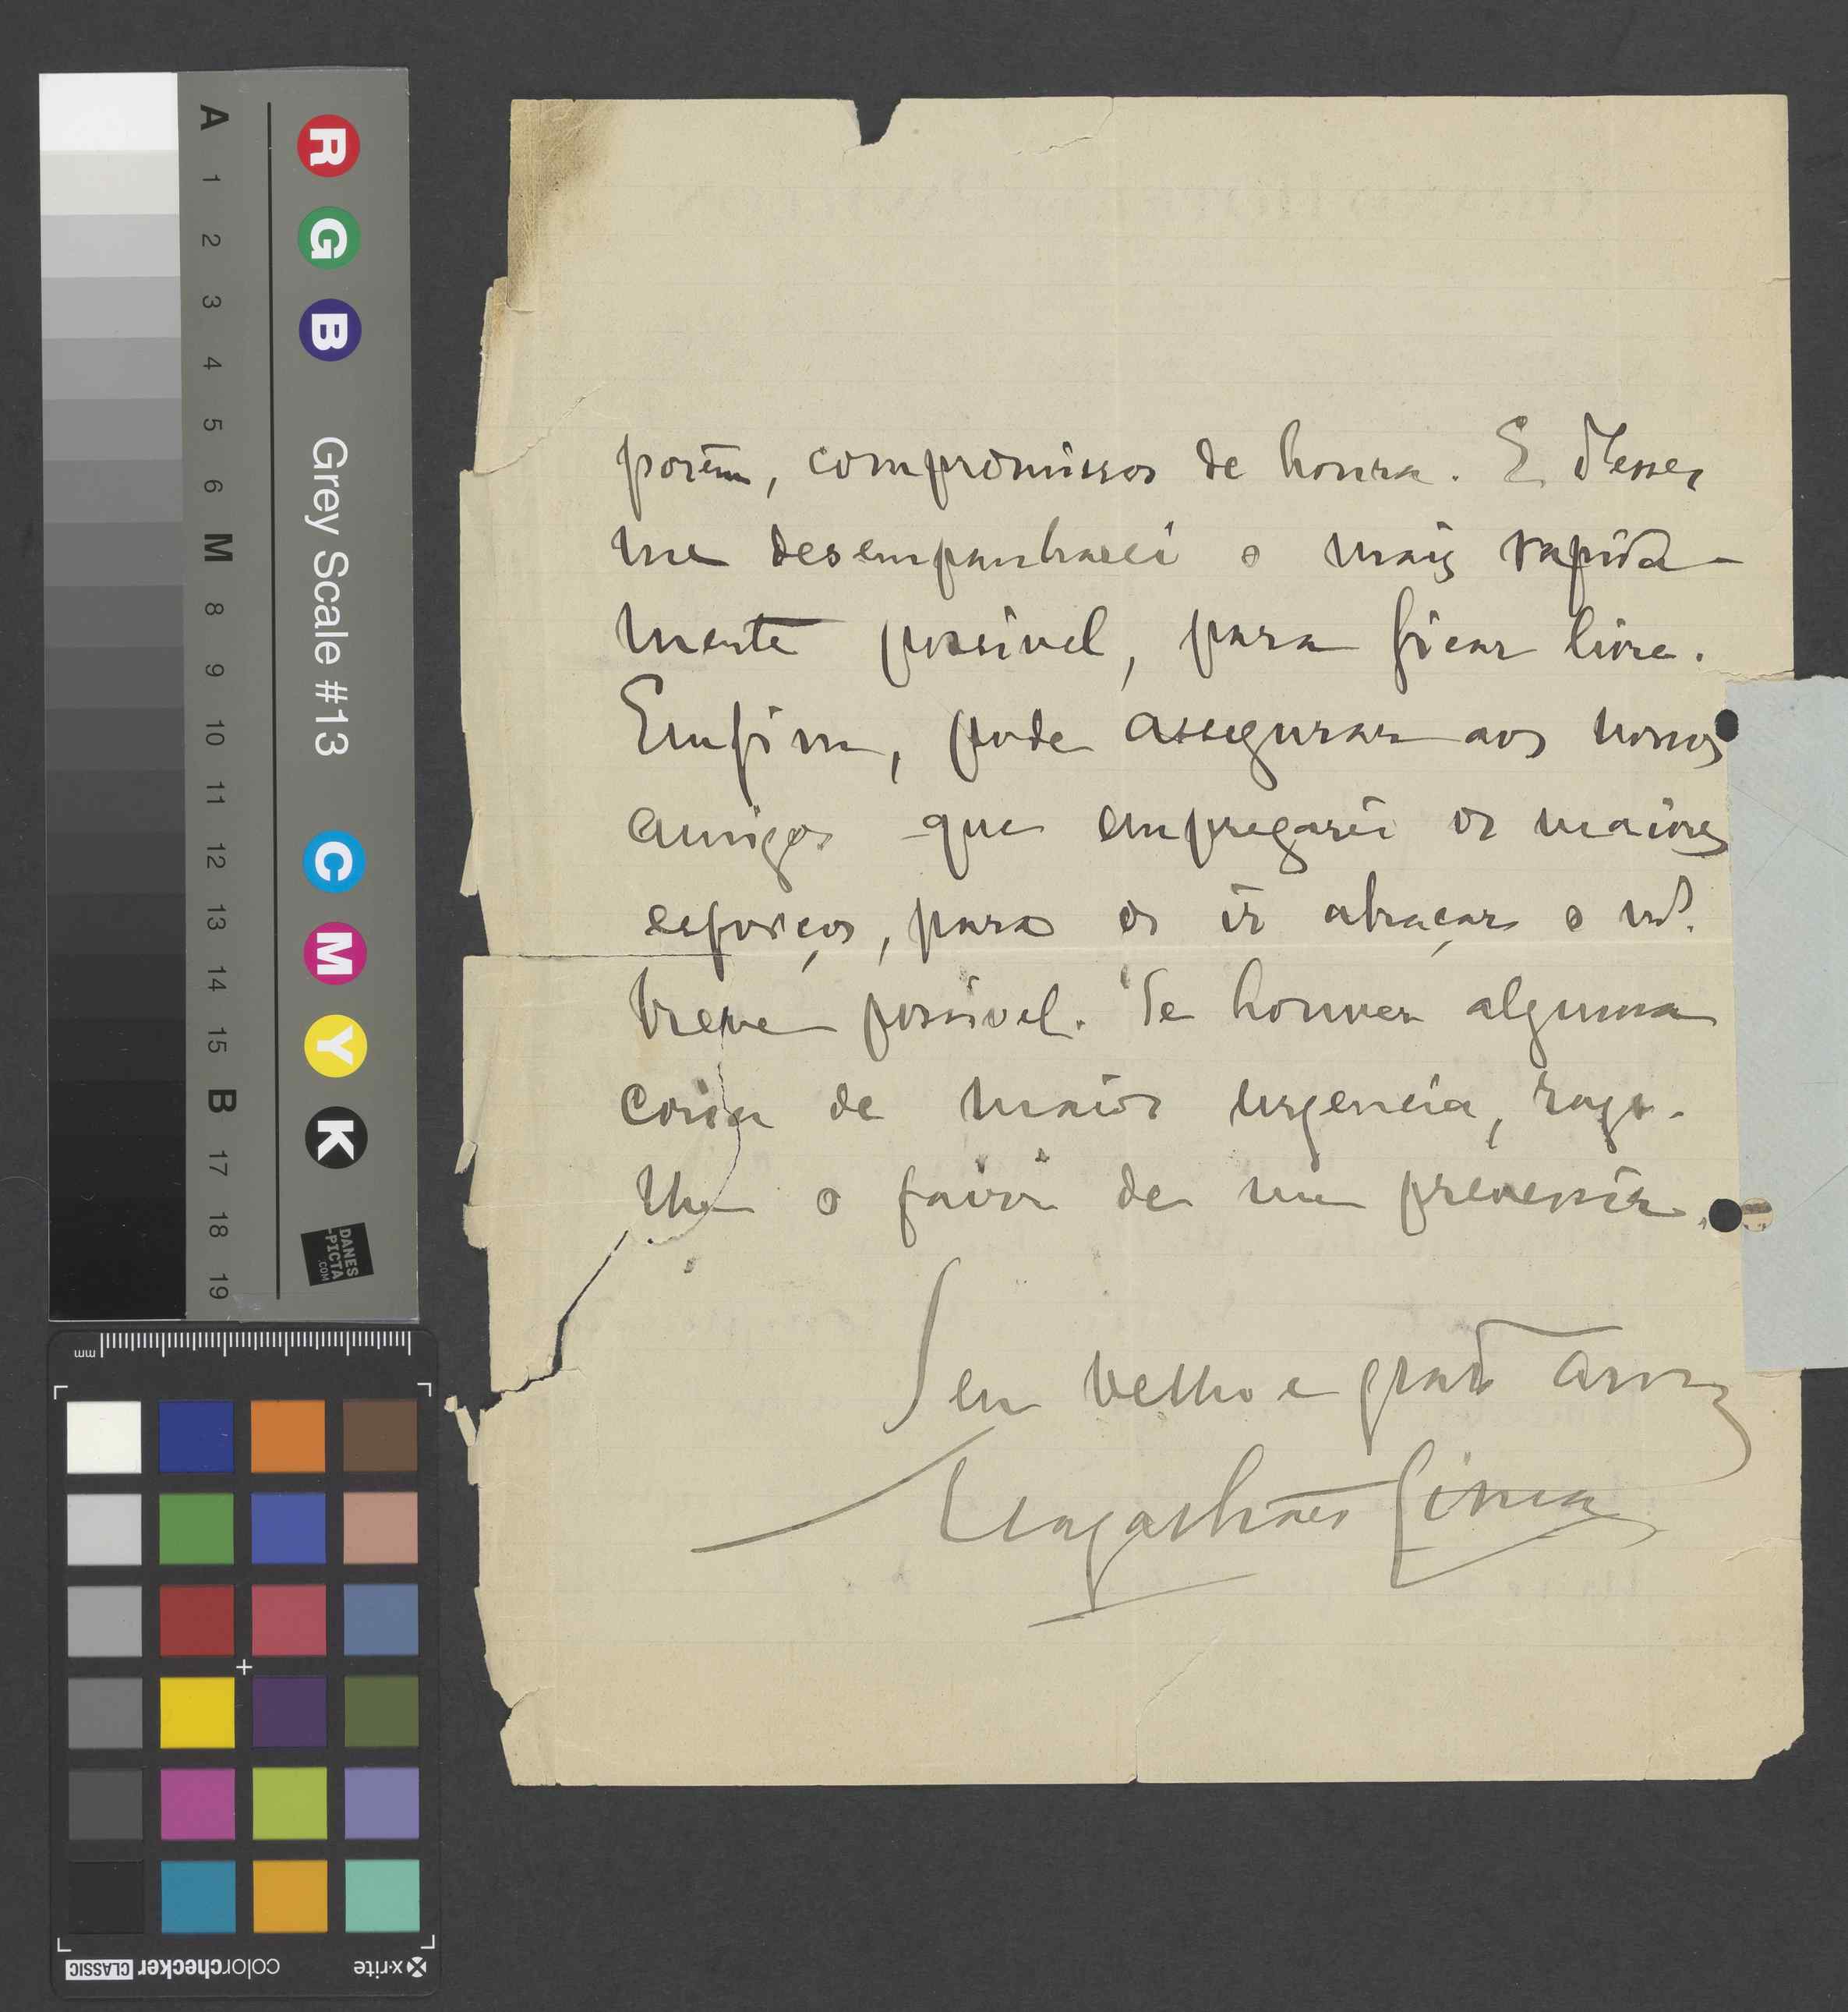 A
1
2
3
4
5
6
M
8
9
10
11
12
13
14
15
B
17
18
19
R
G
B
Grey Scale #13
C
M
Y
K
DANES
-PICTA
.COM
mm
colorchecker CLASSIC
x-rite
porém, compromissos de honra. E d'esses
me desempenharei o mais rapida-
mente possivel, para ficar livre.
Emfim, pode assegurar aos nossos
amigos que empregarei os maiores
esforços, para os ir abraçar o
breve possivel. Se houver alguma
coisa de maior urgencia, rogo-
lhe o favor de me prevenir.
Seu velho e grato
Magalhães Lima